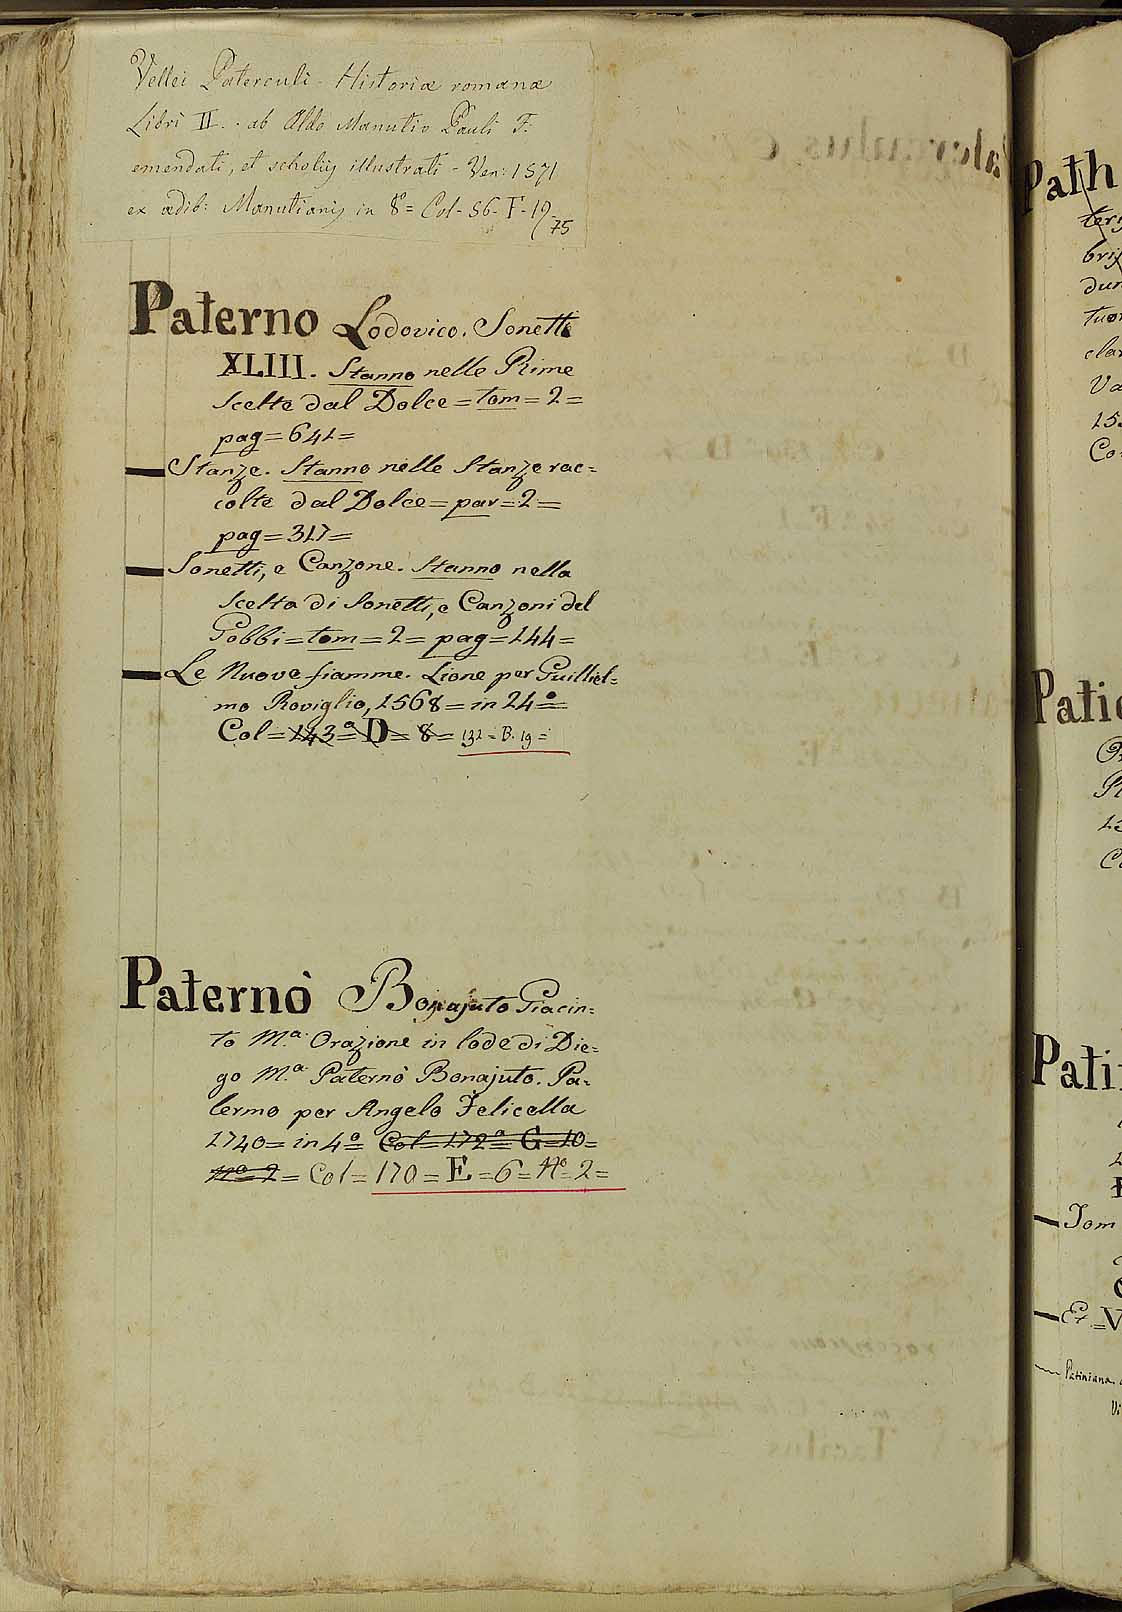 Vellei Paterculi - Historiæ romanæ
Libri II. - ab Aldo Manutio Pauli F.
emendati, et scholijs illustrati - Ven: 1571
ex ædib: Manutianis in 8° = Col - 56 - F - 19
75
Paterno Lodovico. Sonetti
XLIII. Stanno nelle Rime
Scelte dal Dolce = tom = 2 =
pag = 641 =
Stanze. Stanno nelle Stanze rac=
colte dal Dolce = par = 2 =
pag = 317 =
Sonetti, e Canzone. Stanno nella
Scelta di Sonetti, e Canzoni del
Gobbi = tom = 2 = pag = 144 =
Le Nuove fiamme. Lione per Guilliel=
mo Roviglio, 1568 = in 24° =
Col = 143ª = D = 8 = 132 = B. 19 =
Paternò Bonajuto Giacin=
to M.ª Orazione in lode di Die=
go M.ª Paternò Bonajuto. Pa=
lermo per Angelo Felicella
1740 = in 4° = Col = 172ª = G = 10 =
N° = 2 = Col = 170 = E = 6 = N° = 2 =
Path
teri
bri
dun
tuo
cla
Va
15
Co
Patic
Pl
Patin
Tom
Et = V
Patiniana
Vi